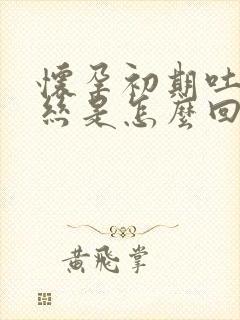 懷孕初期吐
絲是怎麼回
黃飛掌